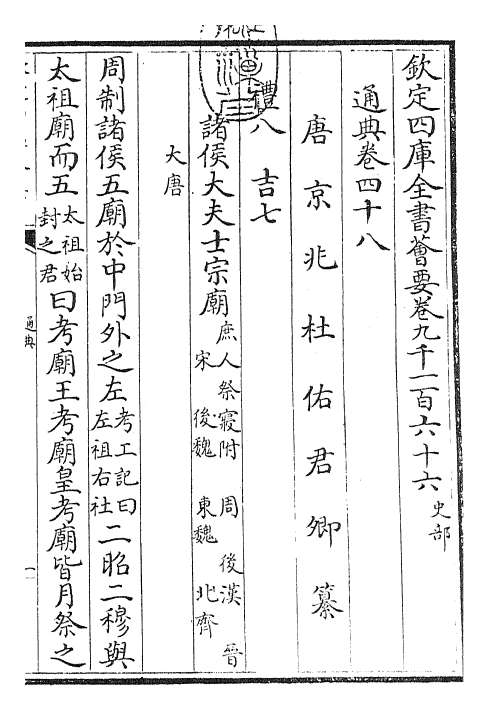 欽定四庫全書薈要卷九千一百六十六 史部
通典卷四十八
唐京兆杜佑君卿纂
禮八 吉七
諸侯大夫士宗廟 庶人祭寢附 周 後漢 晉 宋 後魏 東魏 北齊
大唐
周制諸侯五廟於中門外之左 考工記曰左祖右社 二昭二穆與
太祖廟而五 太祖始封之君 曰考廟王考廟皇考廟皆月祭之
通典
一